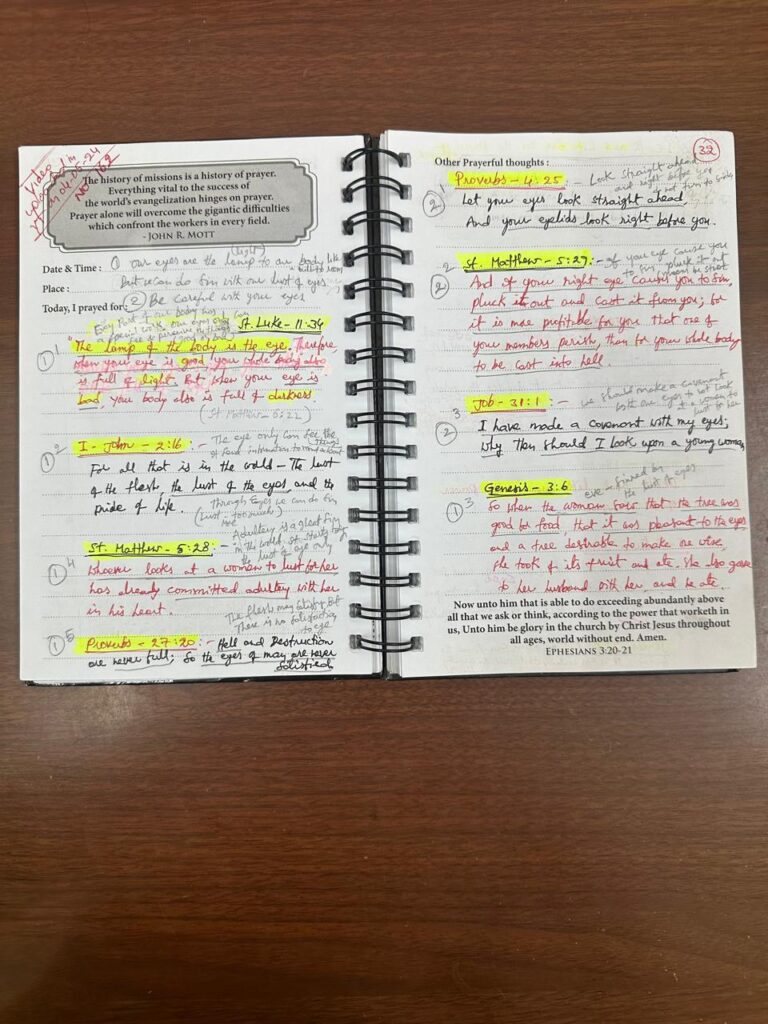 Video
uploaded in
04-05-24
No: 162
The history of missions is a history of prayer.
Everything vital to the success of
the world's evangelization hinges on prayer.
Prayer alone will overcome the gigantic difficulties
which confront the workers in every field.
- JOHN R. MOTT
(light)
Date & Time : ① our eyes are the lamp to our body like
a bulb to room
Place : But we can do sin with our lust of eyes
Today, I prayed for: ② Be careful with your eyes
Every Part of our body has
a special work our eyes only can
St. Luke - 11:34
① 1 "The lamp of the body is the eye. Therefore
when your eye is good, your whole body also
is full of light. But when your eye is
bad, you body also is full of darkness.
(St Matthew - 6:22)
① 2 I - John - 2:16 :- The eye only can see the
things
For all that is in the world - The lust
of the flesh, the lust of the eyes and the
pride of life. Through Eyes we can do sin
Adultery is a great sin
in the world. It starts
by lust of eye only
St. Matthew - 5:28 :-
① 4 Whoever looks at a woman to lust for her
has already committed adultery with her
in his heart.
The flesh may satisfy But
There is no satisfaction
to eye
① 5 Proverbs - 27:20 :- Hell and Destruction
are never full; So the eyes of may are never
satisfied
32
Other Prayerful thoughts :
1 Proverbs - 4:25 - Look straight ahead
and right before you
do not turn to
② Let your eyes look straight ahead
And your eyelids look right before you.
2 St. Matthew - 5:29 :- if you eye cause you
to sin, pluck it out
② And if your right eye causes you to sin,
pluck it out and cast it from you; for
it is more profitable for you that one of
your members perish, than for your whole body
to be cast into hell.
3 Job - 31:1 :- we should make a covenant
with our eyes to not look
at a women to
lust to her
② I have made a covenant with my eyes;
Why then should I look upon a young woman
Genesis - 3:6 eve - sinned by
the lust of eyes
① 3 So when the woman saw that the tree was
good for food, that it was pleasant to the eyes
and a tree desirable to make one wise,
she took of its fruit and ate. She also gave
to her husband with her and he ate.
Now unto him that is able to do exceeding abundantly above
all that we ask or think, according to the power that worketh in
us, Unto him be glory in the church by Christ Jesus throughout
all ages, world without end. Amen.
EPHESIANS 3:20-21